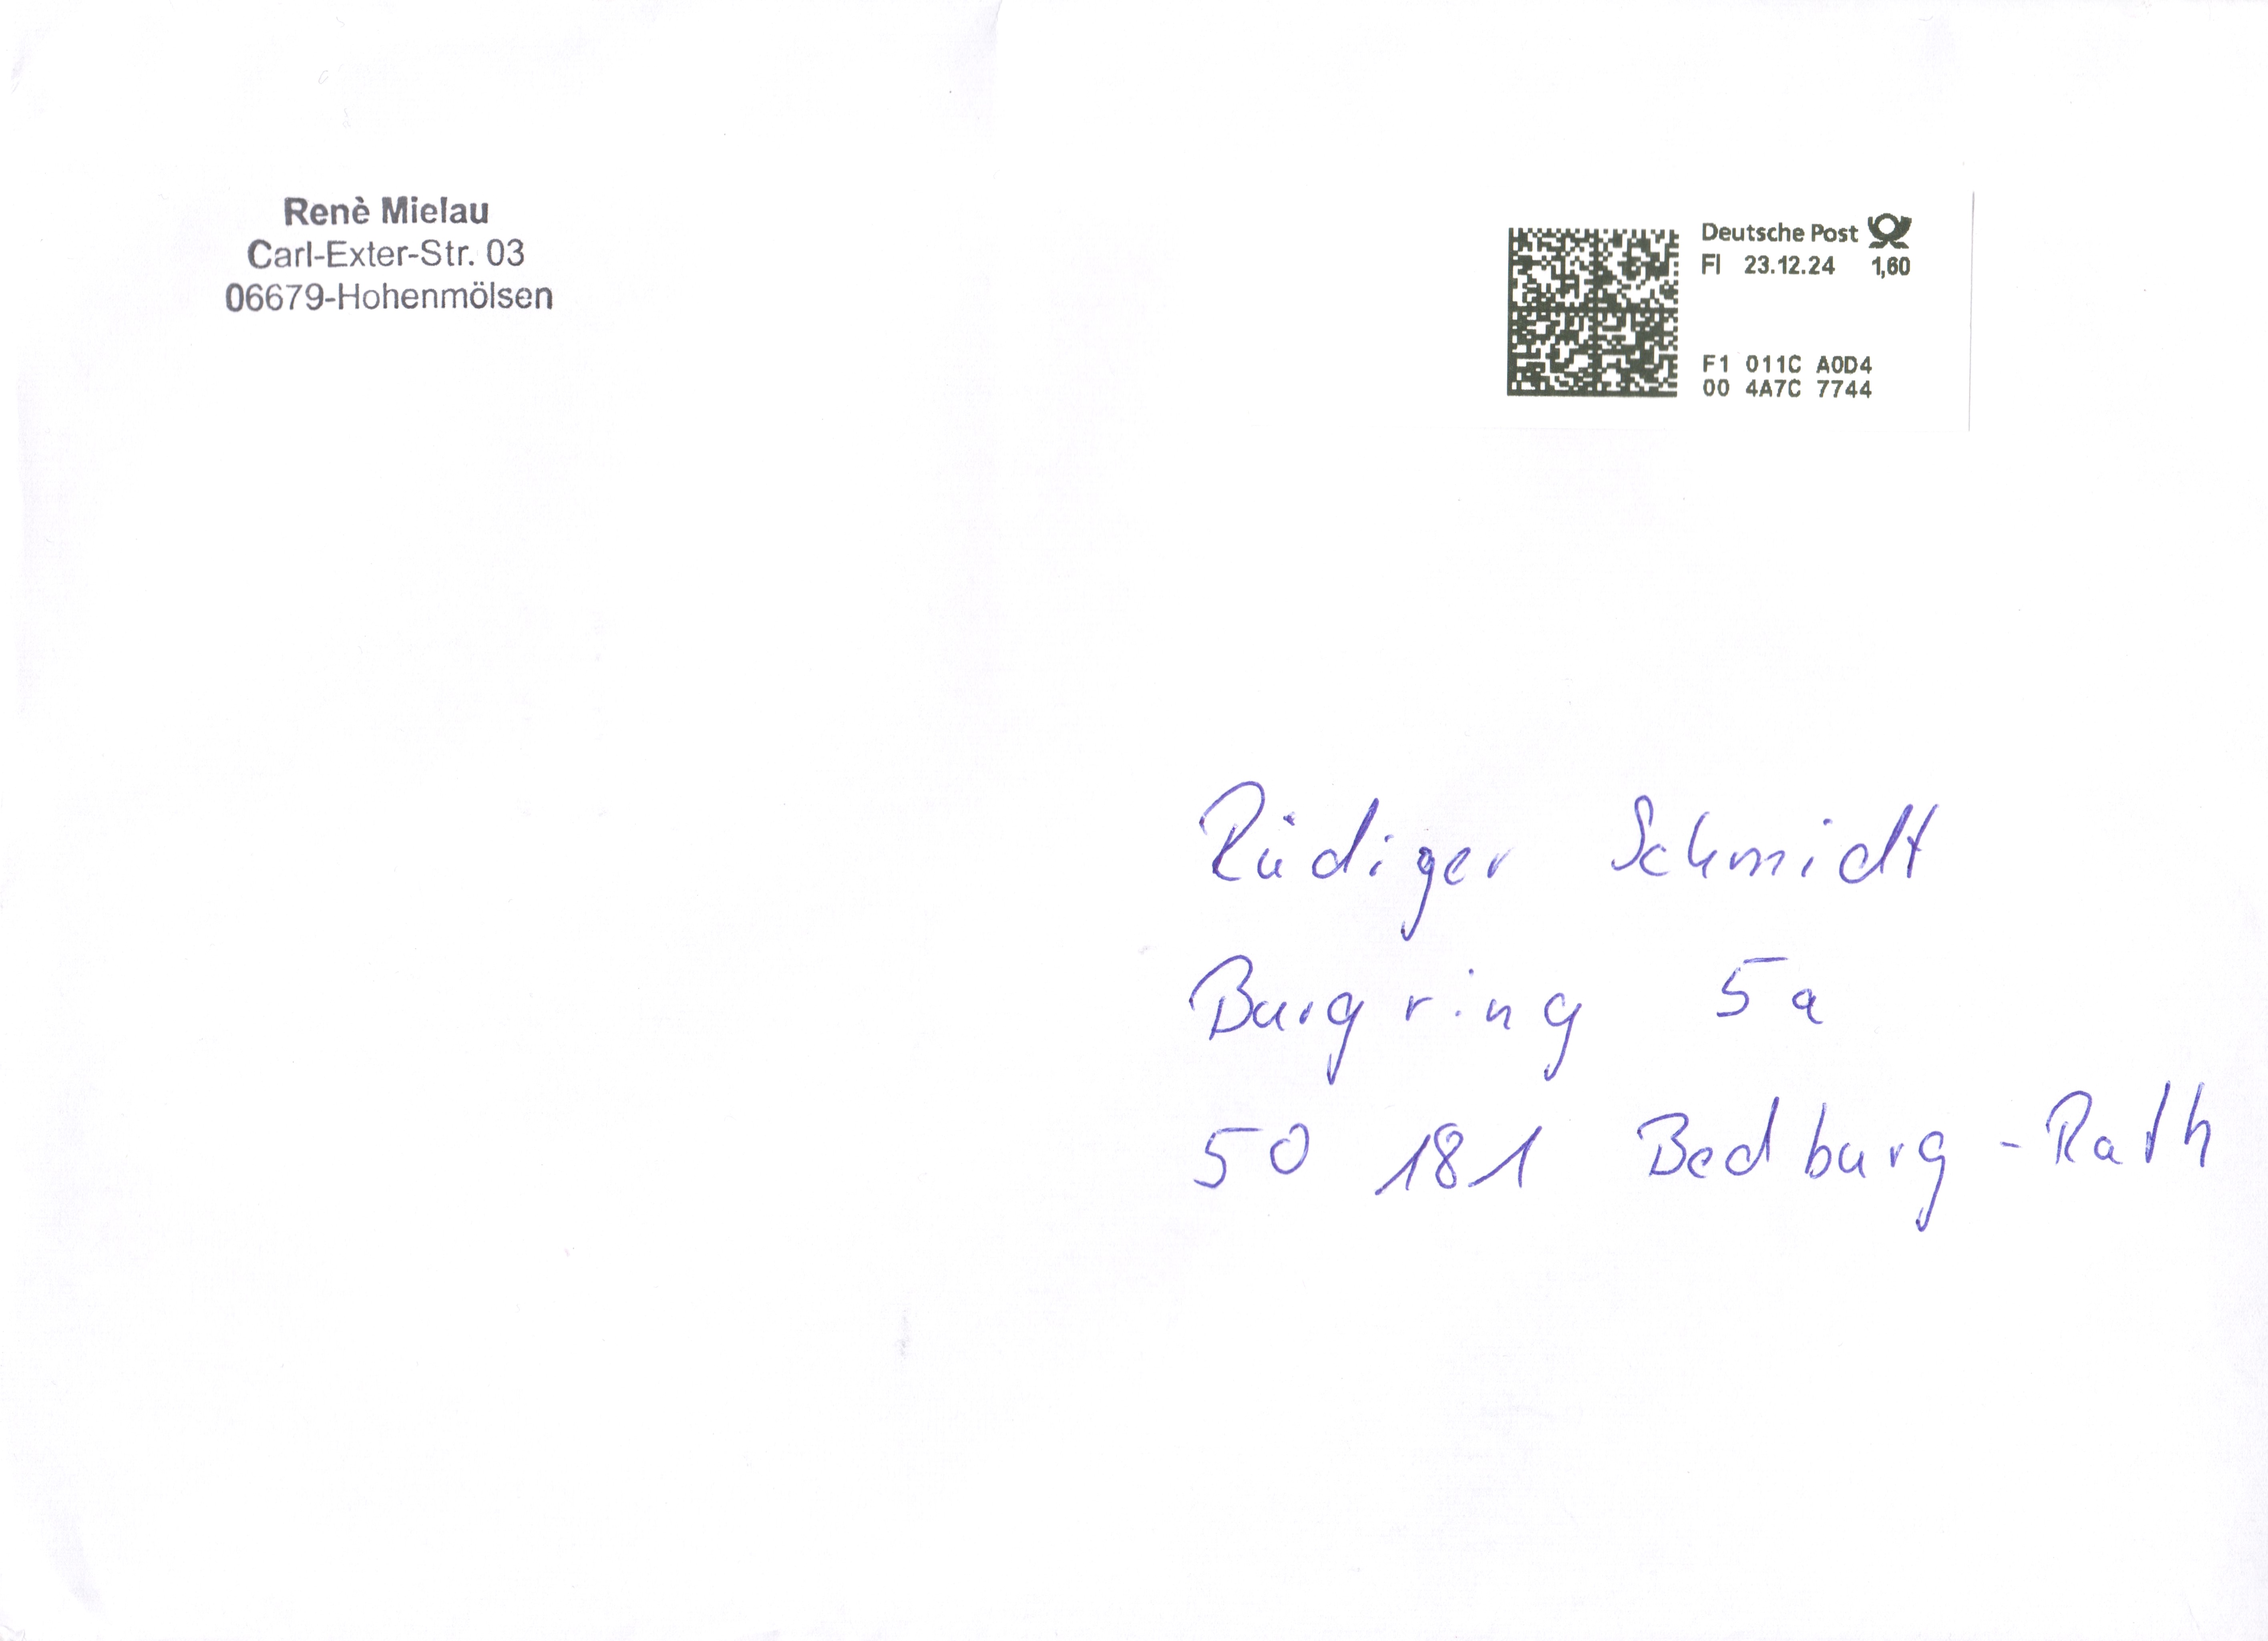 Renè Mielau
Carl-Exter-Str. 03
06679-Hohenmölsen
Deutsche Post
FI 23.12.24 1,60
F1 011C A0D4
00 4A7C 7744
Rüdiger Schmidt
Burgring 5a
50 181 Bedburg-Rath